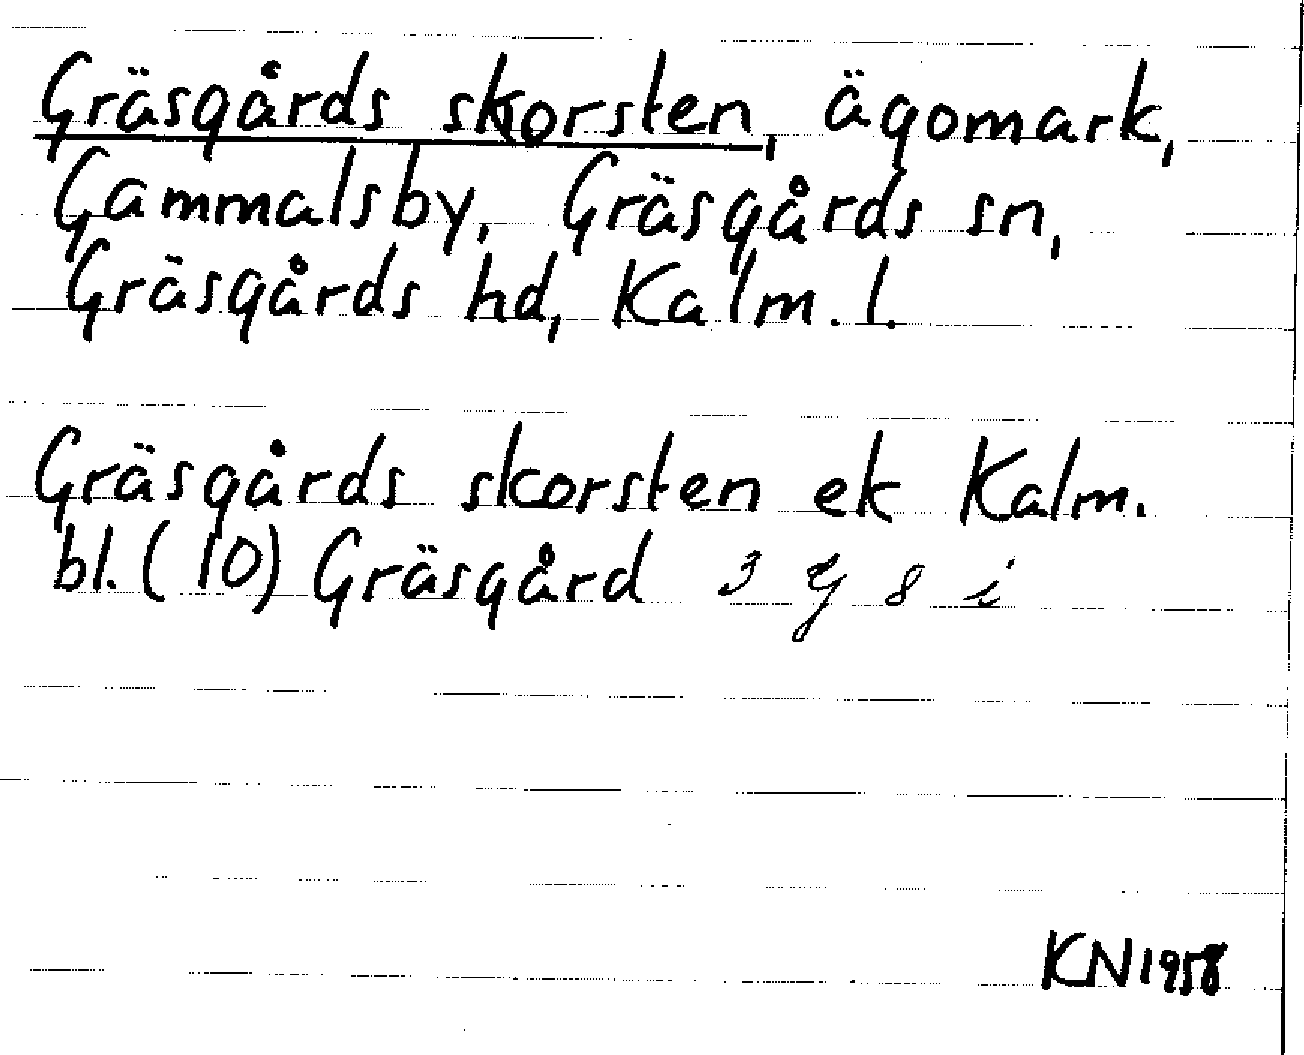 Gräsgårds skorsten, ägomark,
Gammalsby, Gräsgårds sn,
Gräsgårds hd, Kalm. l.
Gräsgårds skorsten ek Kalm.
bl. (10) Gräsgård 3 g 8 i
KN 1958